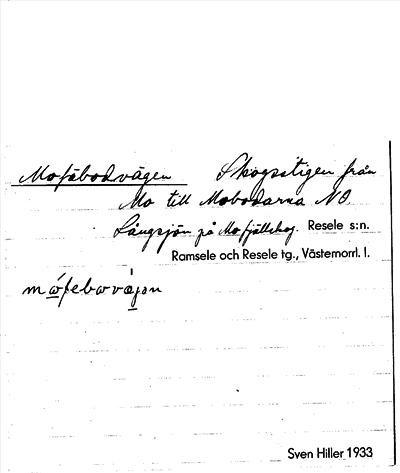 Mofäbodvägen Skogsstigen från
Mo till Mobodarna NO
Långsjön på Mofjällskog. Resele s:n.
Ramsele och Resele tg., Västernorrl. l.
Sven Hiller 1933